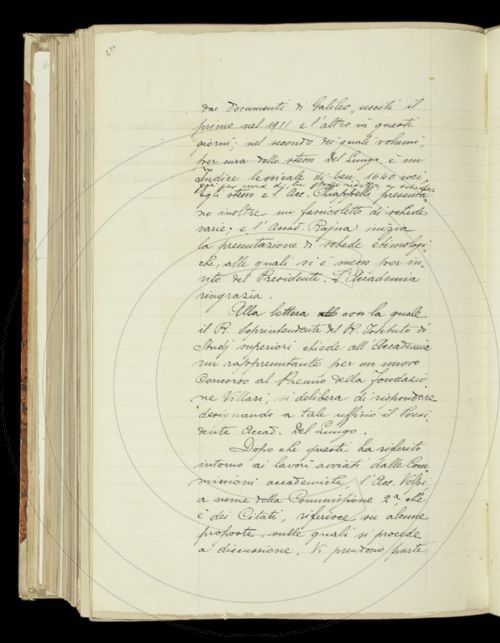 dai Documenti di Galileo, usciti il
primo nel 1911 e l'altro in questi
giorni; nel secondo dei quali volumi,
per cura dello stesso Del Lungo, è un
Indice lessicale di ben 1640 voci,
già per cura di lui ridotto a schede;
Egli stesso e l'Acc. Chiappelli presenta-
no inoltre un fascicoletto di schede
varie; e l'Accad. Rajna inizia
la presentazione di schede etimologi-
che, alle quali si è messo per in-
vito del Presidente. L'Accademia
ringrazia.
Alla lettera con la quale
il R. Soprintendente del R. Istituto di
Studj superiori chiede all'Accademia
un rappresentante per un nuovo
Concorso al Premio della fondazio-
ne Villari, si delibera di rispondere
designando a tale ufficio il Presi-
dente Accad. Del Lungo.
Dopo che questi ha riferito
intorno ai lavori avviati dalle Com-
missioni accademiche, l'Acc. Volpi,
a nome della Commissione 2ª, che
è dei Citati, riferisce su alcune
proposte, sulle quali si procede
a discussione. Vi prendono parte